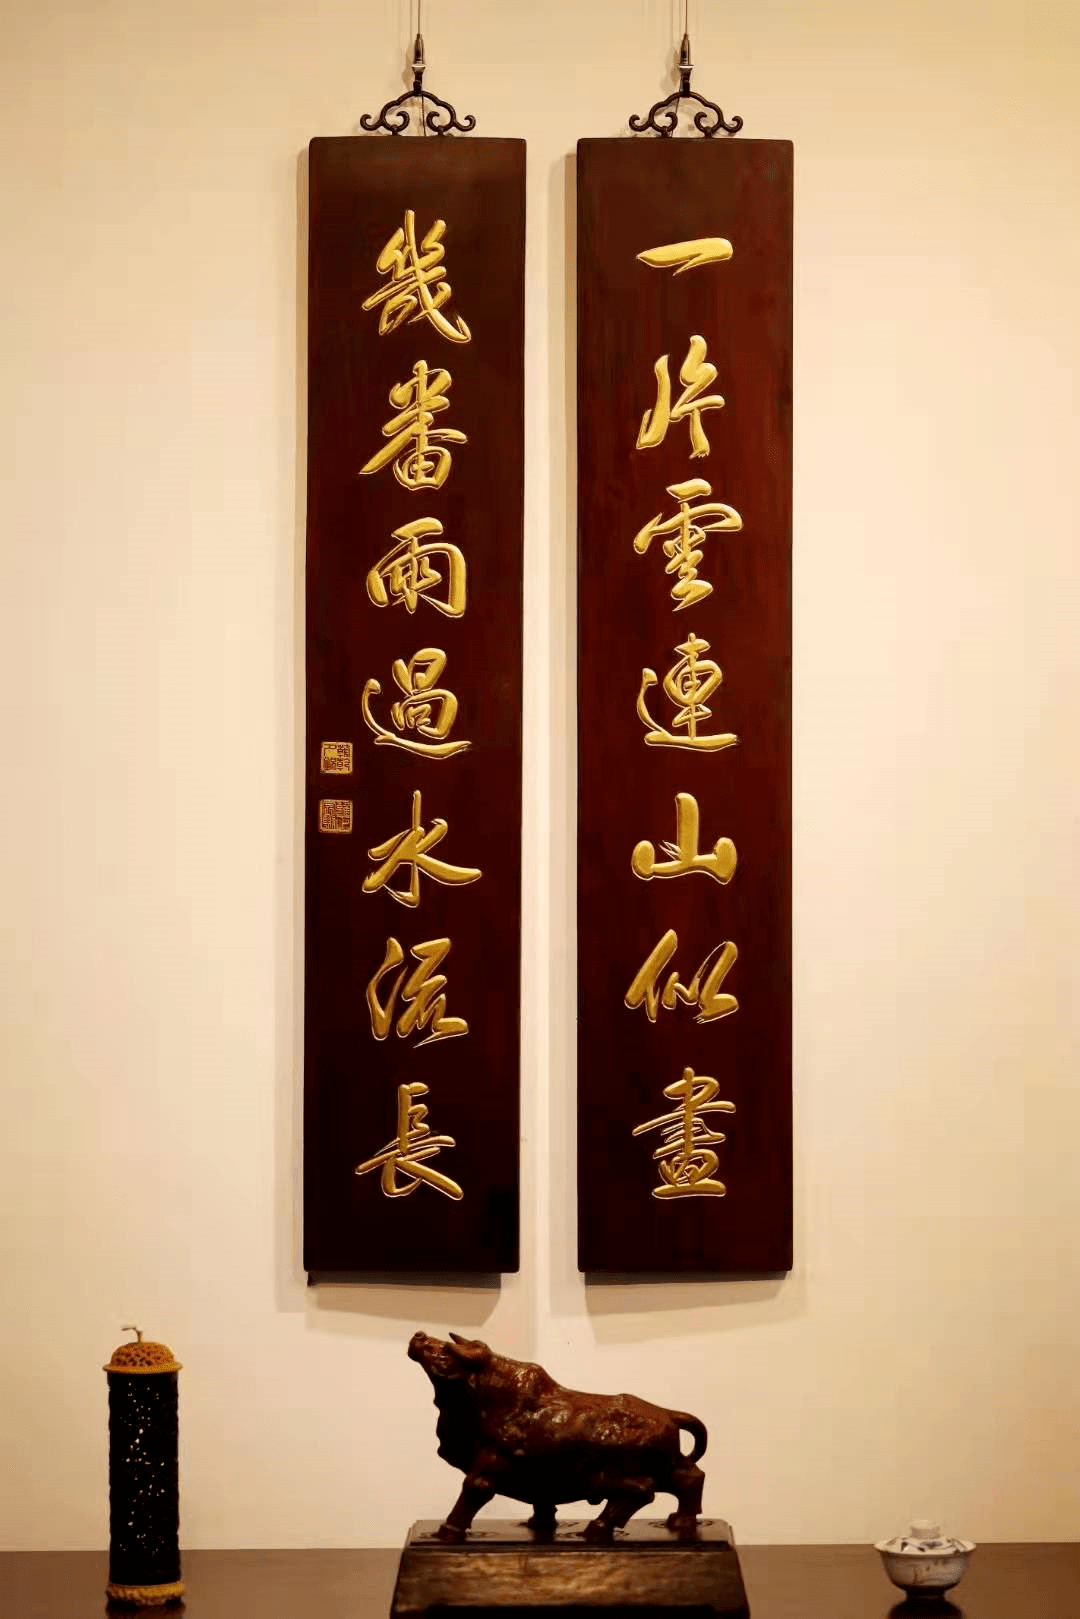 一片雲連山似畫
幾番雨過水流長